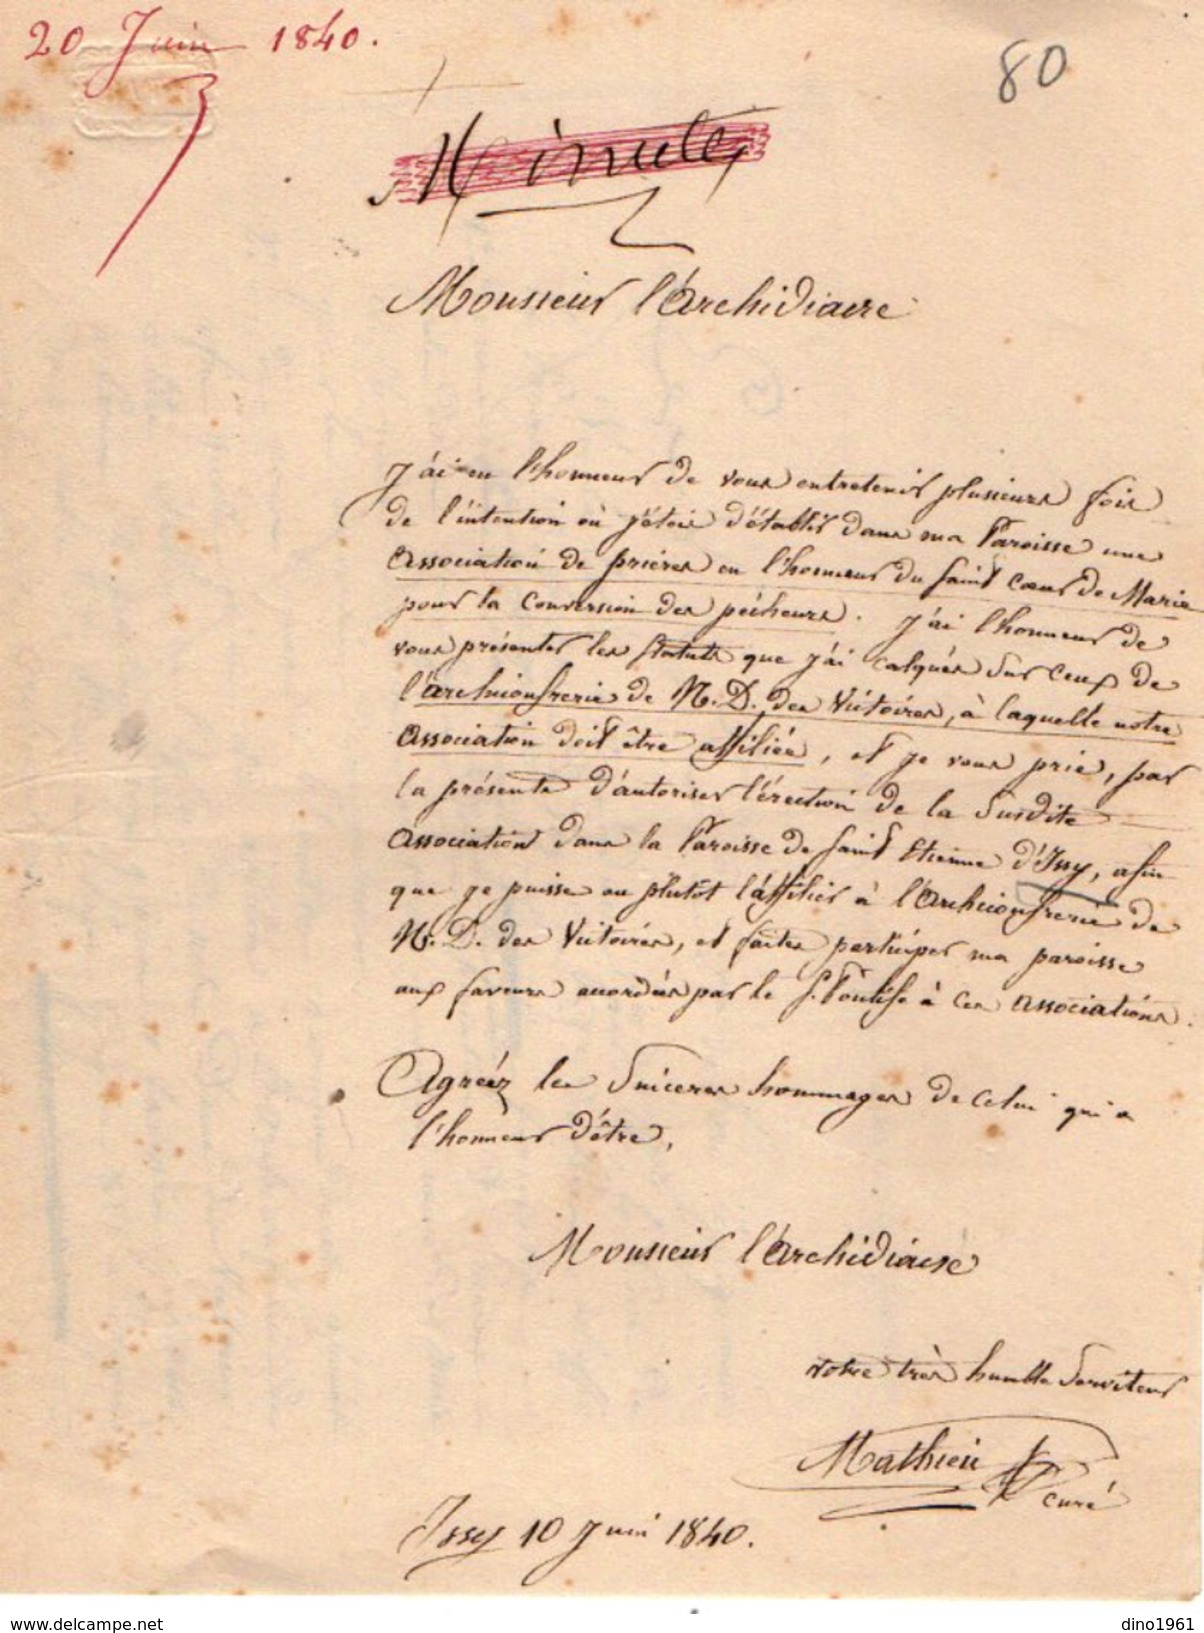 20 Juin 1840.
80
Minute
Monsieur l'Archidiacre
J'ai eu l'honneur de vous entretenir plusieurs fois
de l'intention où j'étois d'établir dans ma Paroisse une
Association de prières en l'honneur du saint cœur de Marie
pour la conversion des pécheurs. J'ai l'honneur de
vous présenter les statuts que j'ai calqués sur ceux de
l'archiconfrerie de N. D. des Victoires, à laquelle notre
association doit être affiliée, et je vous prie, par
la présente d'autoriser l'érection de la susdite
association dans la Paroisse de saint Etienne d'Issy, afin
que je puisse au plutot l'affilier à l'Archiconfrerie de
N. D. des Victoires, et faire participer ma paroisse
aux faveurs accordées par le S. Pontife à ces associations.
Agréez les sinceres hommages de celui qui a
l'honneur d'être,
Monsieur l'Archidiacre
votre très humble serviteur
Mathieu
curé
Issy 10 Juin 1840.
dino1961
http://www.delcampe.net